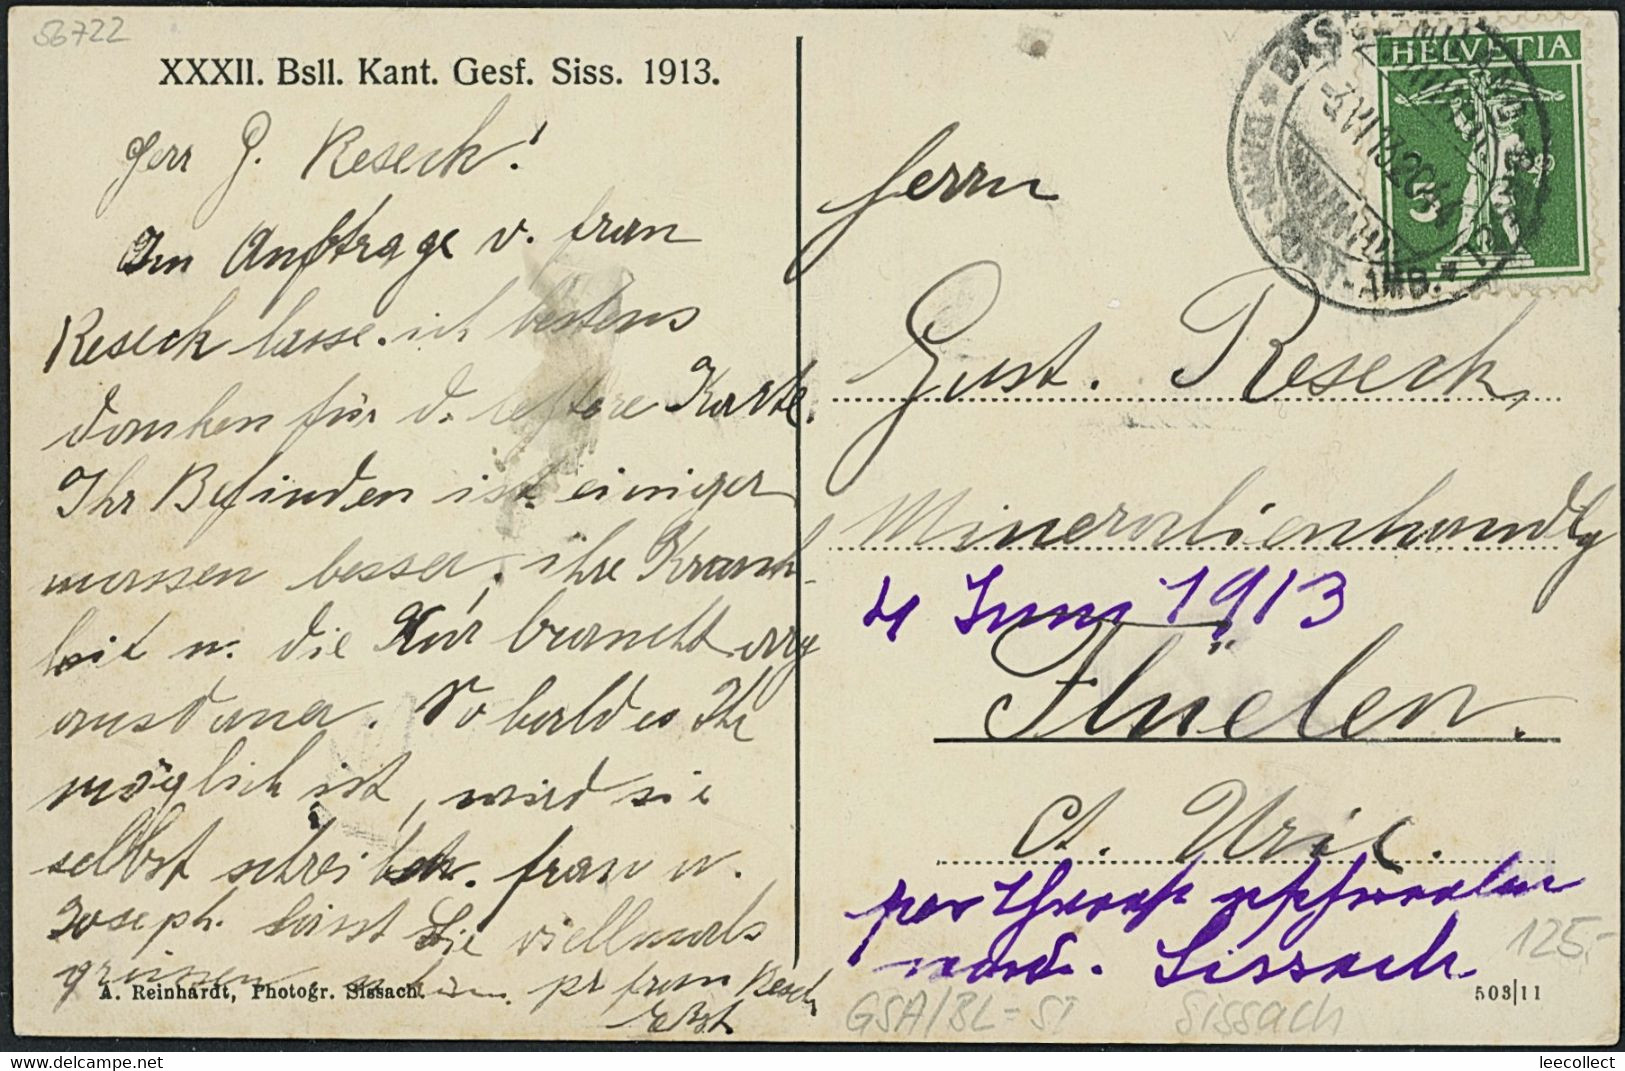 56722
XXXII. Bsll. Kant. Gesf. Siss. 1913.
Herr G. Reseck!
Im Auftrage v. frau
Reseck lasse ich bestens
danken für d. letztere Karte.
Ihr Befinden ist einiger
massen besser, ihre Krank-
heit u. die Kur braucht
ausdauer. So bald es Ihr
möglich ist, wird sie
selbst schreiben. frau u.
Joseph. lässt Sie viellmals
grüssen pr frau Reseck
A. Reinhardt, Photogr. Sissach.
HELVETIA
5
POST-AMB.
Herrn
Gust. Reseck,
Mineralienhandlg
4 Juni 1913
Flüelen.
Ct. Uri.
Sissach.
125.-
503|11
GSA/BL=SI Sissach
leecollect